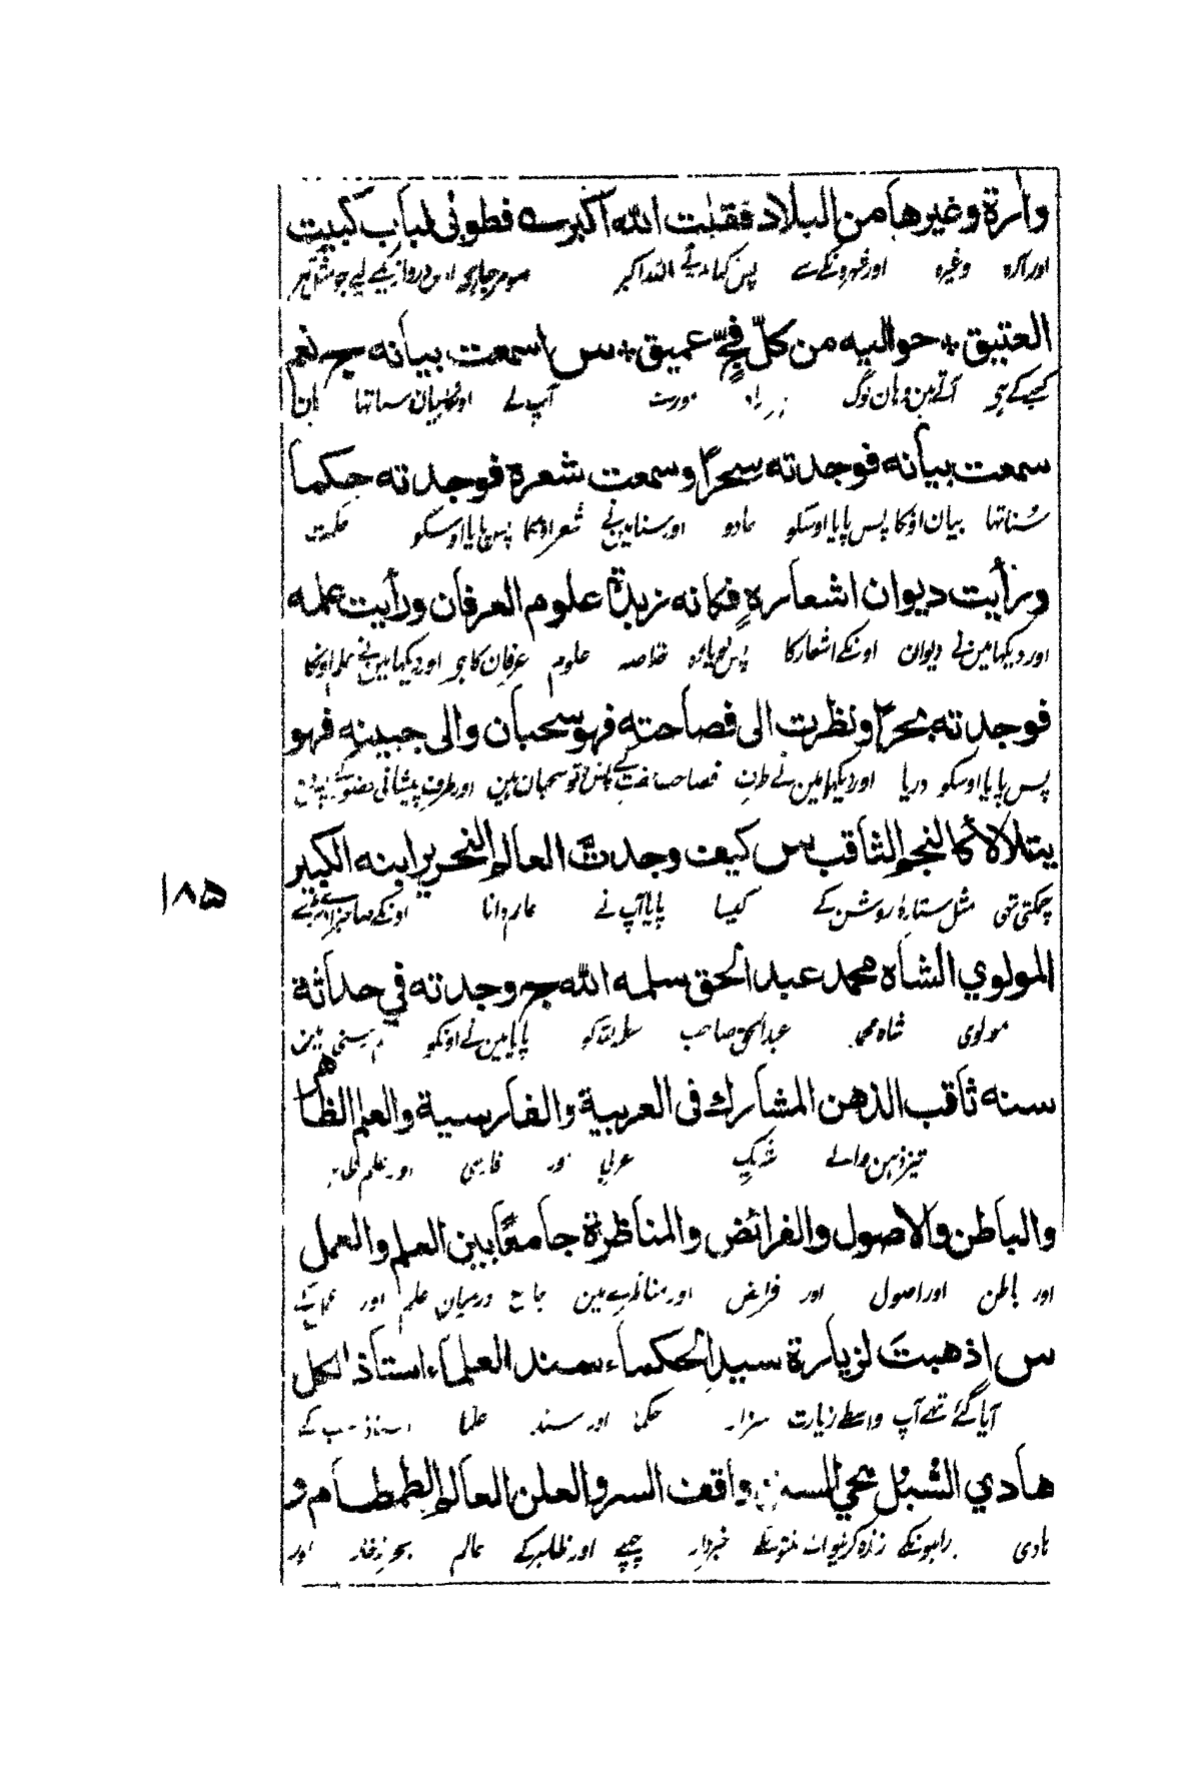 وارة وغيرها من البلاد فقلت الله اكبر سه فطوبى لباب كبيت
اور آره وغيره اور شہرونکے سے پس کہا مینے الله اکبر
العتيق + حواليه من كل فجّ عميق + س اسمعت بيانه ج نعم
کعبے کے ہی آتے ہین وہان لوگ راہ آپ نے اونکا بیان سناتہا ہان
سمعت بيانه فوجدته سحرا وسمعت شعره فوجدته حكما
سُناتہا بیان اونکا پس پایا اوسکو جادو اور سنا مینے شعر اونکا پس پایا اوسکو حکمت
ورأيت ديوان اشعاره فكانه زبدة علوم العرفان ورأيت علمه
اور دیکہا مین نے دیوان اونکے اشعار کا پس گویا وہ خلاصہ علوم عرفان کا ہی اور دیکہا مین نے علم اونکا
فوجدته بحرا ونظرت الى فصاحته فهو سحبان والى جبينه فهو
پس پایا اوسکو دریا اور دیکہا مین نے طرف فصاحت کے پس تو سحبان ہین اور طرف پیشانی
يتلألأ كالنجم الثاقب س كيف وجدت العالم النحرير ابنه الكبير
چمکتی تہی مثل ستارۂ روشن کے کیسا پایا آپ نے عالم دانا اونکے صاحبزادے بڑے
المولوي الشاه محمد عبد الحق سلمه الله ج وجدته في حداثة
مولوی شاہ محمد عبدالحق صاحب سلمہ اللہ کو پایا مین نے اونکو کم سنی مین
سنه ثاقب الذهن المشارك فى العربية والفارسية والعلم الظاهر
تیز ذہن والے شریک عربی اور فارسی اور علم ظاہر
والباطن والاصول والفرائض والمناظرة جامعا بين العلم والعمل
اور باطن اور اصول اور فرایض اور مناظرے مین جامع درمیان علم اور عمل کے
س اذهبت لزيارة سيد الحكماء سند العلماء استاذ الكل
آیا گئے تہے آپ واسطے زیارت سردار حکما اور سند علما استاذ سب کے
هادي السُبُل محي السنن واقف السر والعلن العالم الطمطام و
ہادی راہونکے زندہ کرنیوالے سنتونکے خبردار چہپے اور ظاہر کے عالم بحر ذخار اور
۱۸۵